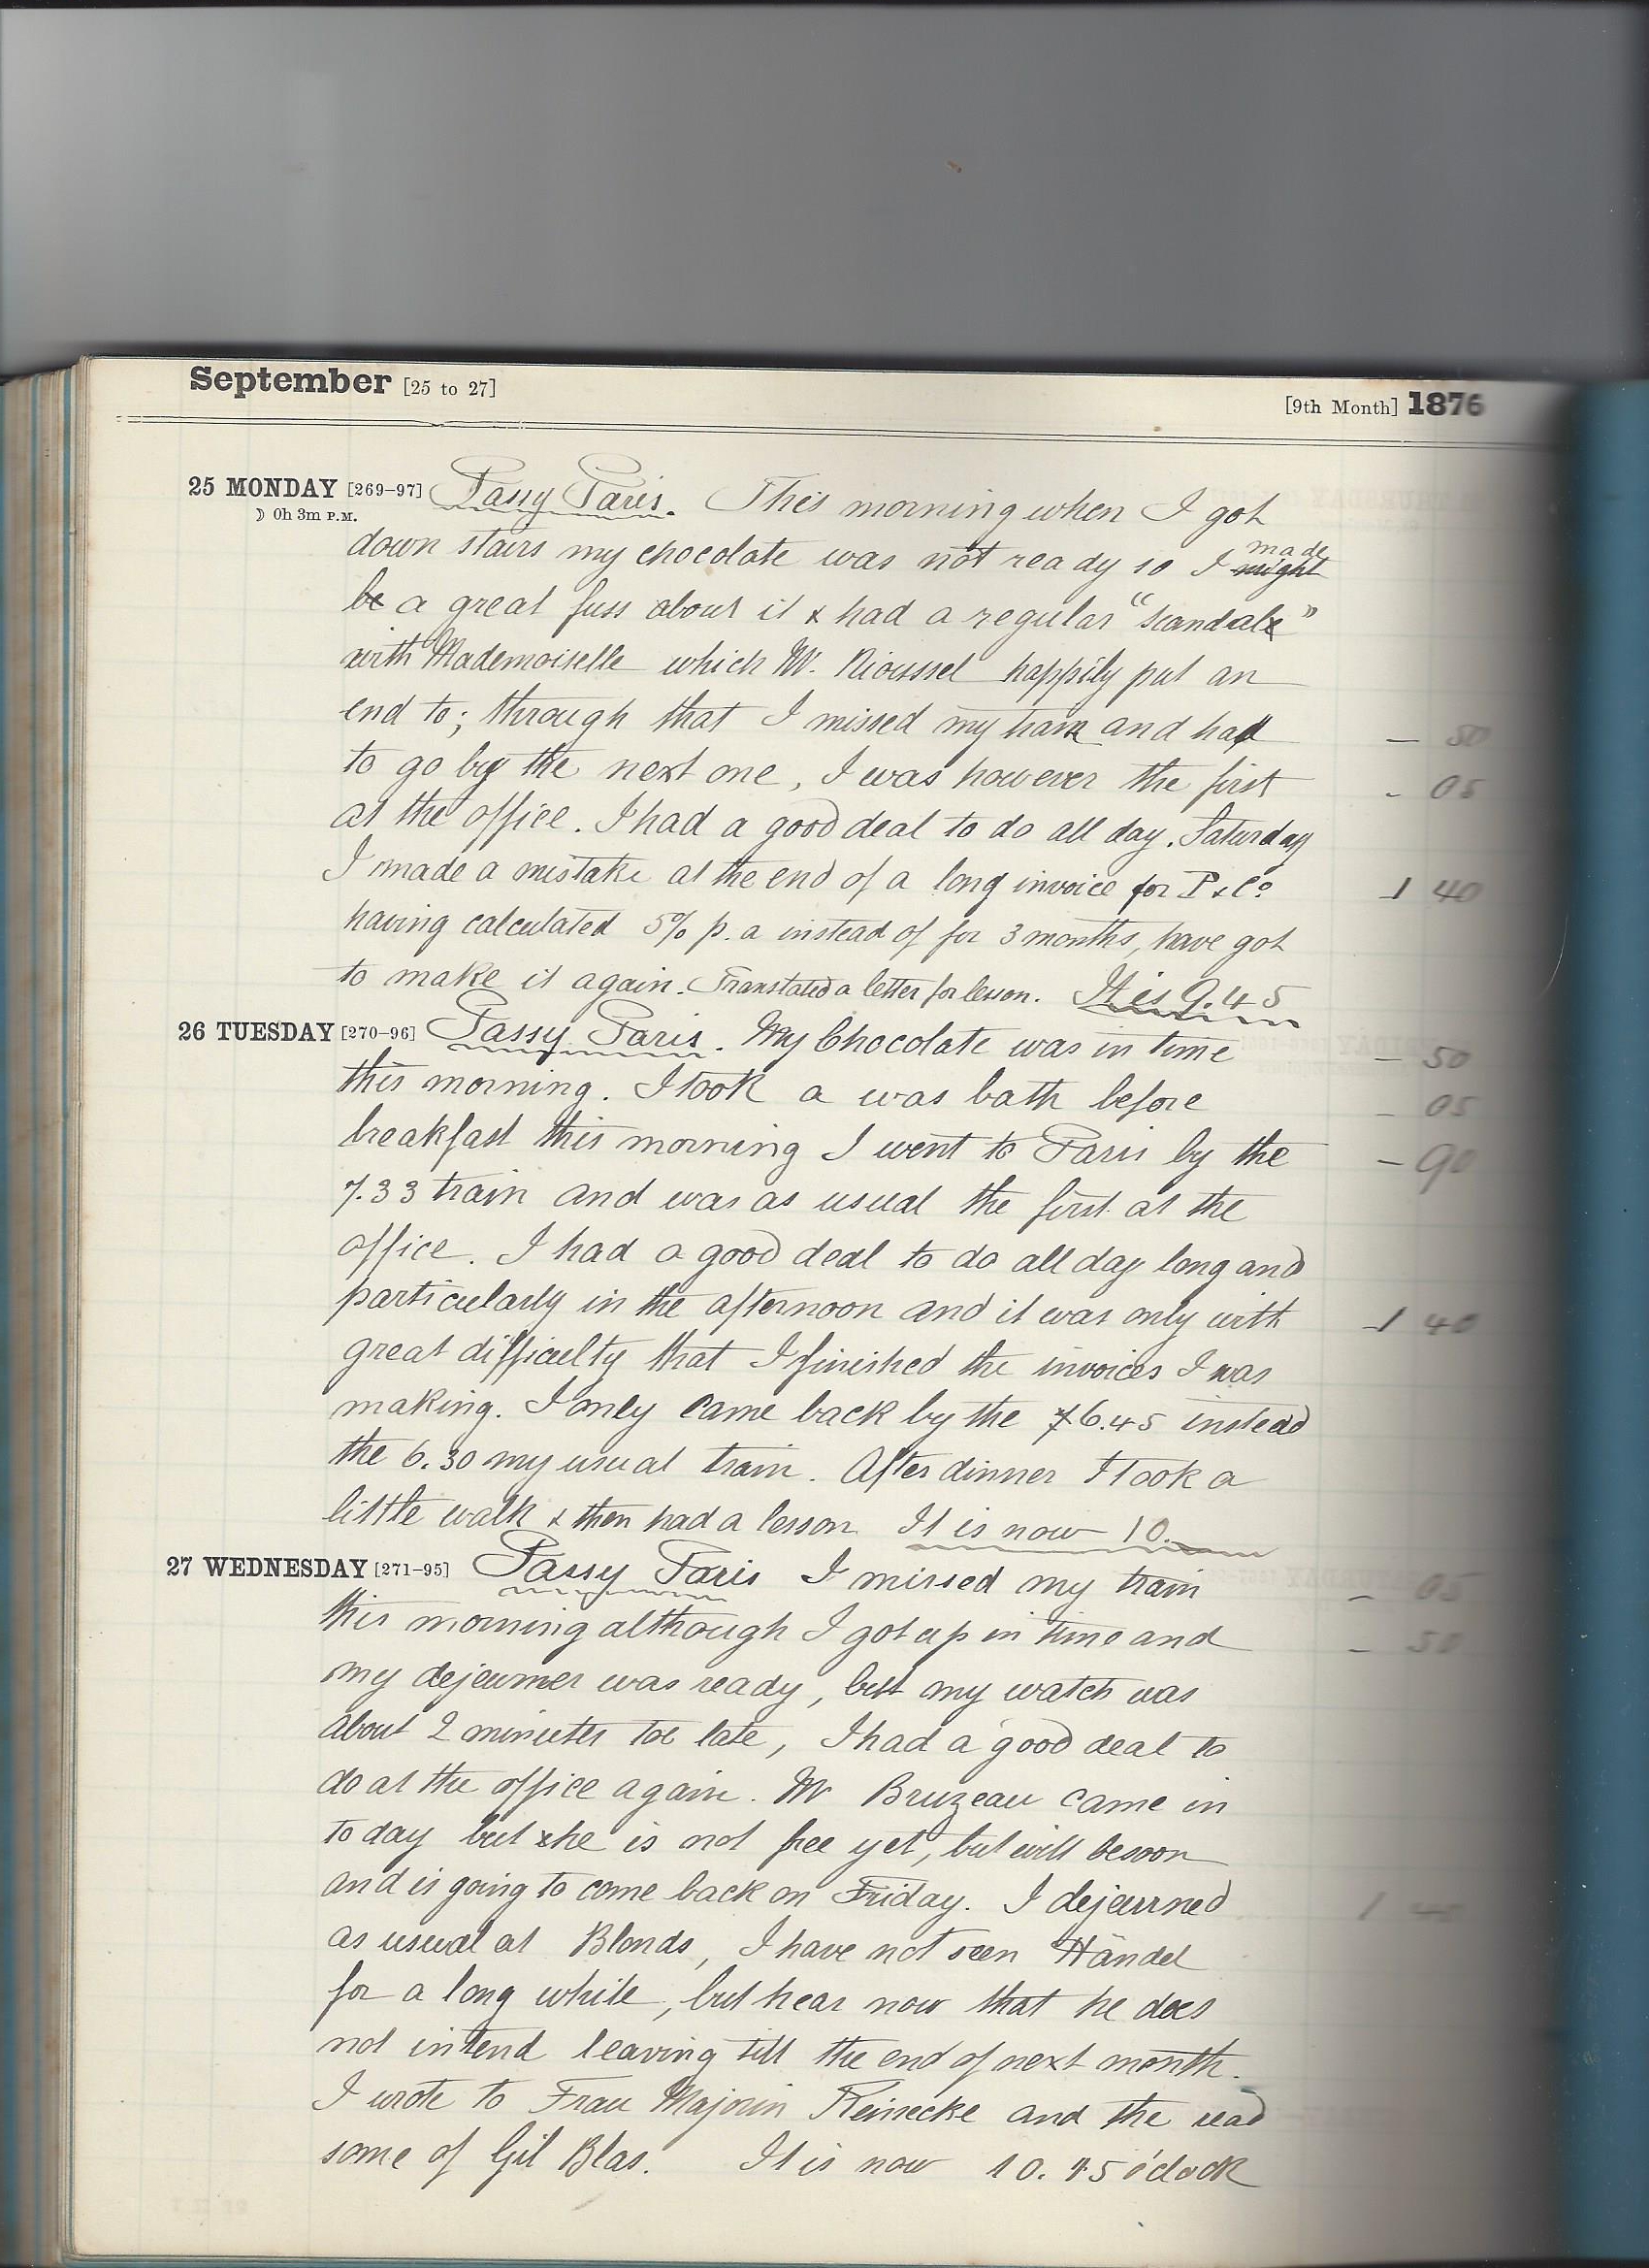 September [25 to 27] [9th Month] 1876
25 MONDAY [269-97] Passy Paris. This morning when I got
☽ 0h 3m P.M.
down stairs my chocolate was not ready so I ~~might~~ made
~~be~~ a great fuss about it & had a regular "scandal"
with Mademoiselle which M. Rioussel happily put an
end to; through that I missed my train and had — 50
to go by the next one, I was however the first - 05
at the office. I had a good deal to do all day. Saturday
I made a mistake at the end of a long invoice for P & Co 1 40
having calculated 5% p. a instead of for 3 months, have got
to make it again. Translated a letter for lesson. It is 9.45
26 TUESDAY [270-96] Passy Paris. My Chocolate was in time — 50
this morning. I took a was bath before - 05
breakfast this morning I went to Paris by the - 90
7.33 train and was as usual the first at the
office. I had a good deal to do all day long and
particularly in the afternoon and it was only with 1 40
great difficulty that I finished the invoices I was
making. I only came back by the 6.45 instead
the 6.30 my usual train. After dinner I took a
little walk & then had a lesson It is now 10.
27 WEDNESDAY [271-95] Passy Paris I missed my train - 05
this morning although I got up in time and - 50
my dejeuner was ready, but my watch was
about 2 minutes too late, I had a good deal to
do at the office again. Mr Bruzeau came in
to day but he is not free yet, but will be soon
and is going to come back on Friday. I dejeurned 1 40
as usual at Blonds, I have not seen Händel
for a long while, but hear now that he does
not intend leaving till the end of next month.
I wrote to Frau Majorin Reinecke and the read
some of Gil Blas. It is now 10.45 o'clock